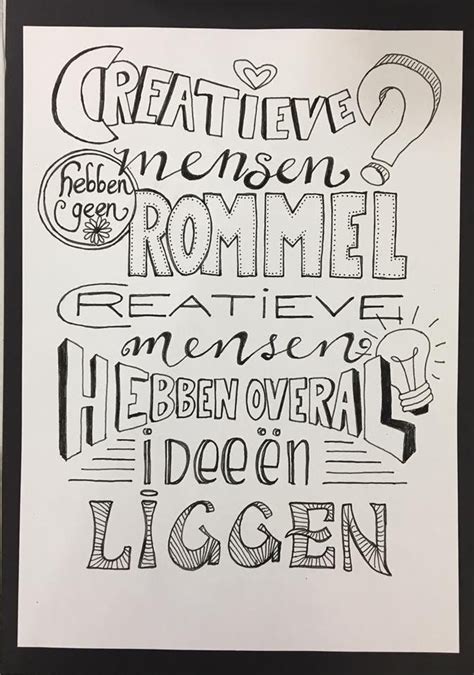 CREATIEVE
mensen
hebben
geen
ROMMEL
CREATIEVE
mensen
HEBBEN OVERAL
ideeën
LIGGEN